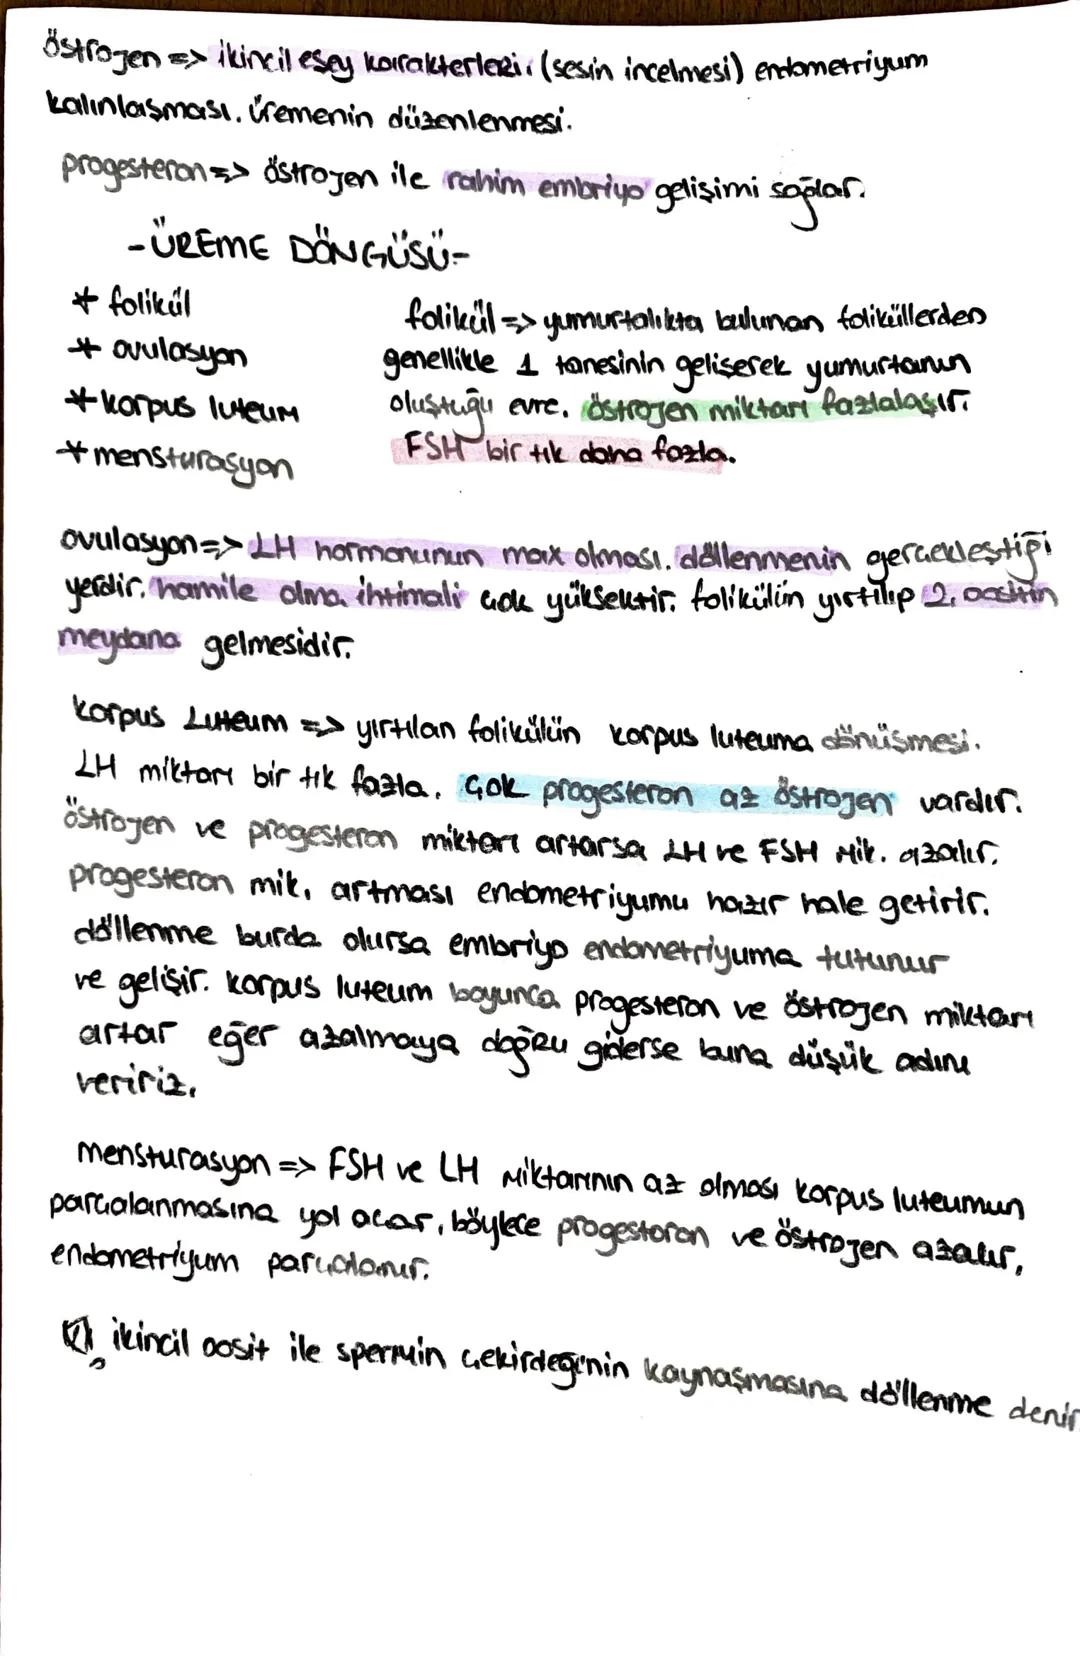 östrojen => ikincil eşey karakterleri. (sesin incelmesi) endometriyum
kalınlaşması. üremenin düzenlenmesi.
progesteron => östrojen ile rahim embriyo gelişimi sağlar.
-ÜREME DÖNGÜSÜ-
* folikül
* ovulasyon
* korpus luteum
* mensturasyon
folikül => yumurtalıkta bulunan foliküllerden
genellikle 1 tanesinin gelişerek yumurtanın
oluştuğu evre. östrojen miktarı fazlalaşır.
FSH bir tık daha fazla.
ovulasyon => LH hormonunun max olması. döllenmenin gerçekleştiği
yerdir. hamile olma ihtimali çok yüksektir. folikülün yırtılıp 2. oositin
meydana gelmesidir.
korpus Luteum => yırtılan folikülün korpus luteuma dönüşmesi.
LH miktarı bir tık fazla. Çok progesteron az östrojen vardır.
östrojen ve progesteron miktarı artarsa LH ve FSH Mik. azalır.
progesteron mik. artması endometriyumu hazır hale getirir.
döllenme burda olursa embriyo endometriyuma tutunur
ve gelişir. korpus luteum boyunca progesteron ve östrojen miktarı
artar eğer azalmaya doğru giderse buna düşük adını
veririz.
mensturasyon => FSH ve LH Miktarının az olması korpus luteumun
parçalanmasına yol açar, böylece progestoron ve östrojen azalır,
endometriyum parçalanır.
ikincil oosit ile spermin çekirdeğinin kaynaşmasına döllenme denir.